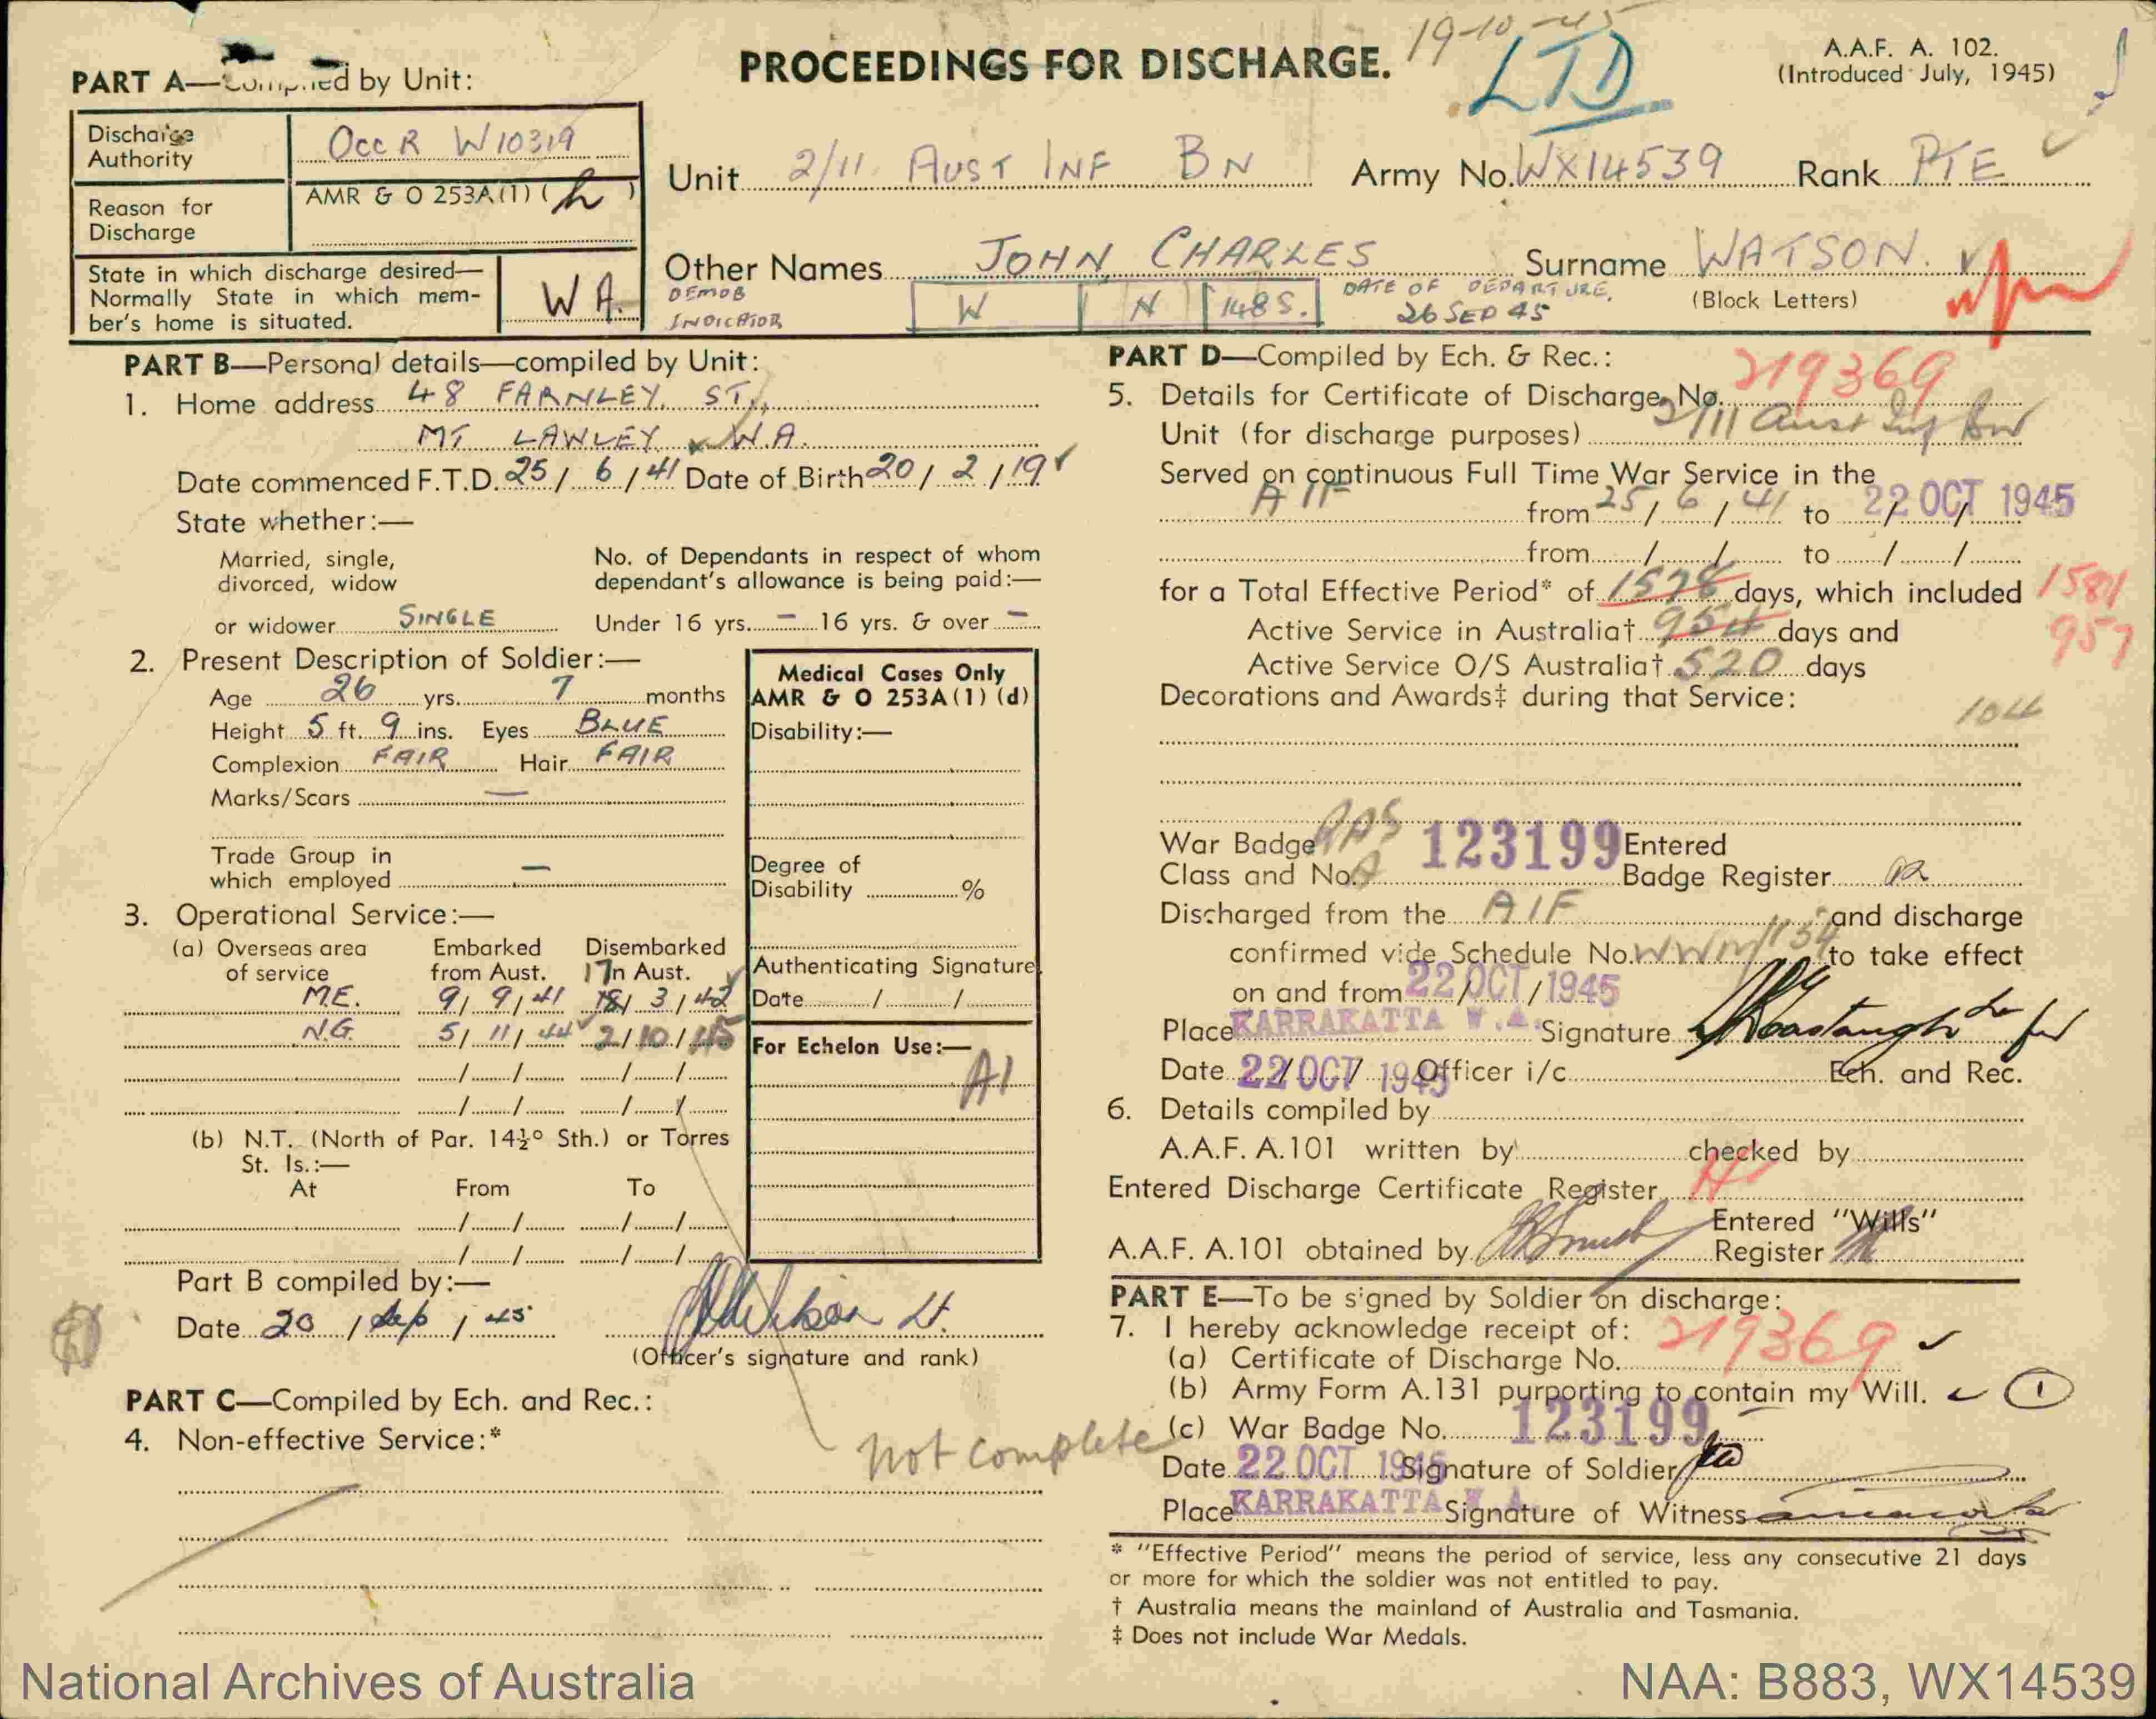 19-10-45
PROCEEDINGS FOR DISCHARGE.
LTD
A.A.F. A. 102.
(Introduced July, 1945)
PART A—Compiled by Unit:
Discharge Authority
Occ R W10319
Reason for Discharge
AMR & O 253A(1) (h)
State in which discharge desired—
Normally State in which mem-
ber's home is situated.
WA.
Unit 2/11 AUST INF BN Army No. WX14539 Rank PTE
Other Names JOHN CHARLES Surname WATSON
(Block Letters)
DEMOB
INDICATOR
W N 148S.
DATE OF DEPARTURE.
26 SEP 45
PART B—Personal details—compiled by Unit:
1. Home address 48 FARNLEY ST.,
MT LAWLEY W.A.
Date commenced F.T.D. 25/6/41 Date of Birth 20/2/19
State whether:—
Married, single,
divorced, widow
or widower SINGLE
No. of Dependants in respect of whom
dependant's allowance is being paid:—
Under 16 yrs. — 16 yrs. & over —
2. Present Description of Soldier:—
Age 26 yrs. 7 months
Height 5 ft. 9 ins. Eyes BLUE
Complexion FAIR Hair FAIR
Marks/Scars —
Trade Group in
which employed —
Medical Cases Only
AMR & O 253A(1) (d)
Disability:—
Degree of
Disability %
Authenticating Signature
Date / /
For Echelon Use:—
A1
3. Operational Service:—
(a) Overseas area of service
Embarked from Aust.
Disembarked in Aust.
17
M.E. 9/9/41 18/3/42
N.G. 5/11/44 2/10/45
/ / / /
/ / / /
(b) N.T. (North of Par. 14½° Sth.) or Torres
St. Is.:—
At From To
/ / / /
/ / / /
Part B compiled by:—
Date 20/Sep/45
Lt.
(Officer's signature and rank)
PART C—Compiled by Ech. and Rec.:
4. Non-effective Service:*
not complete
PART D—Compiled by Ech. & Rec.:
5. Details for Certificate of Discharge No. 219369
Unit (for discharge purposes) 2/11 Aust Inf Bn
Served on continuous Full Time War Service in the
AIF from 25/6/41 to 22 OCT 1945
from / / to / /
for a Total Effective Period* of 1578 days, which included 1581
Active Service in Australia† 954 days and 957
Active Service O/S Australia† 520 days
Decorations and Awards‡ during that Service:
104
War Badge RAS 123199 Entered
Class and No. A Badge Register
Discharged from the AIF and discharge
confirmed vide Schedule No. WWM/134 to take effect
on and from 22 OCT 1945
Place KARRAKATTA W.A. Signature
Date 22 OCT 1945 Officer i/c Ech. and Rec.
6. Details compiled by
A.A.F. A.101 written by checked by
Entered Discharge Certificate Register
A.A.F. A.101 obtained by
Entered "Wills"
Register
PART E—To be signed by Soldier on discharge:
7. I hereby acknowledge receipt of:
(a) Certificate of Discharge No. 219369
(b) Army Form A.131 purporting to contain my Will. 1
(c) War Badge No. 123199
Date 22 OCT 1945 Signature of Soldier
Place KARRAKATTA W.A. Signature of Witness
* "Effective Period" means the period of service, less any consecutive 21 days
or more for which the soldier was not entitled to pay.
† Australia means the mainland of Australia and Tasmania.
‡ Does not include War Medals.
National Archives of Australia
NAA: B883, WX14539